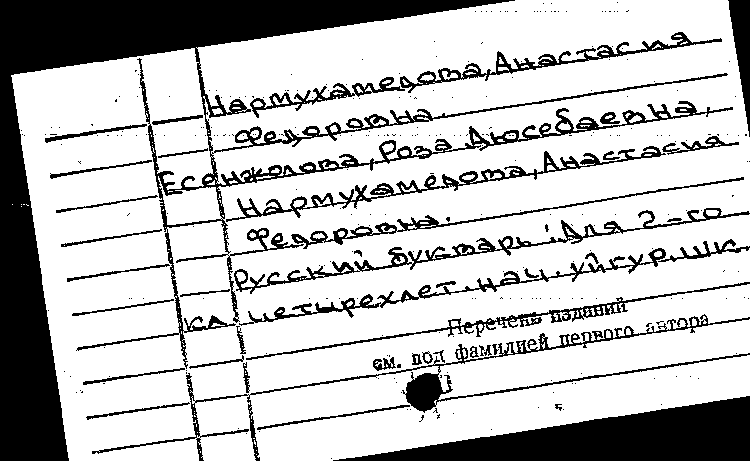 Нармухамедова, Анастасия
Федоровна.
Есенжолова, Роза Дюсебаевна,
Нармухамедова, Анастасия
Федоровна.
Русский букварь: Для 2-го
кл. четырехлет. нач. уйгур. шк.
Перечень изданий
см. под фамилией первого автора